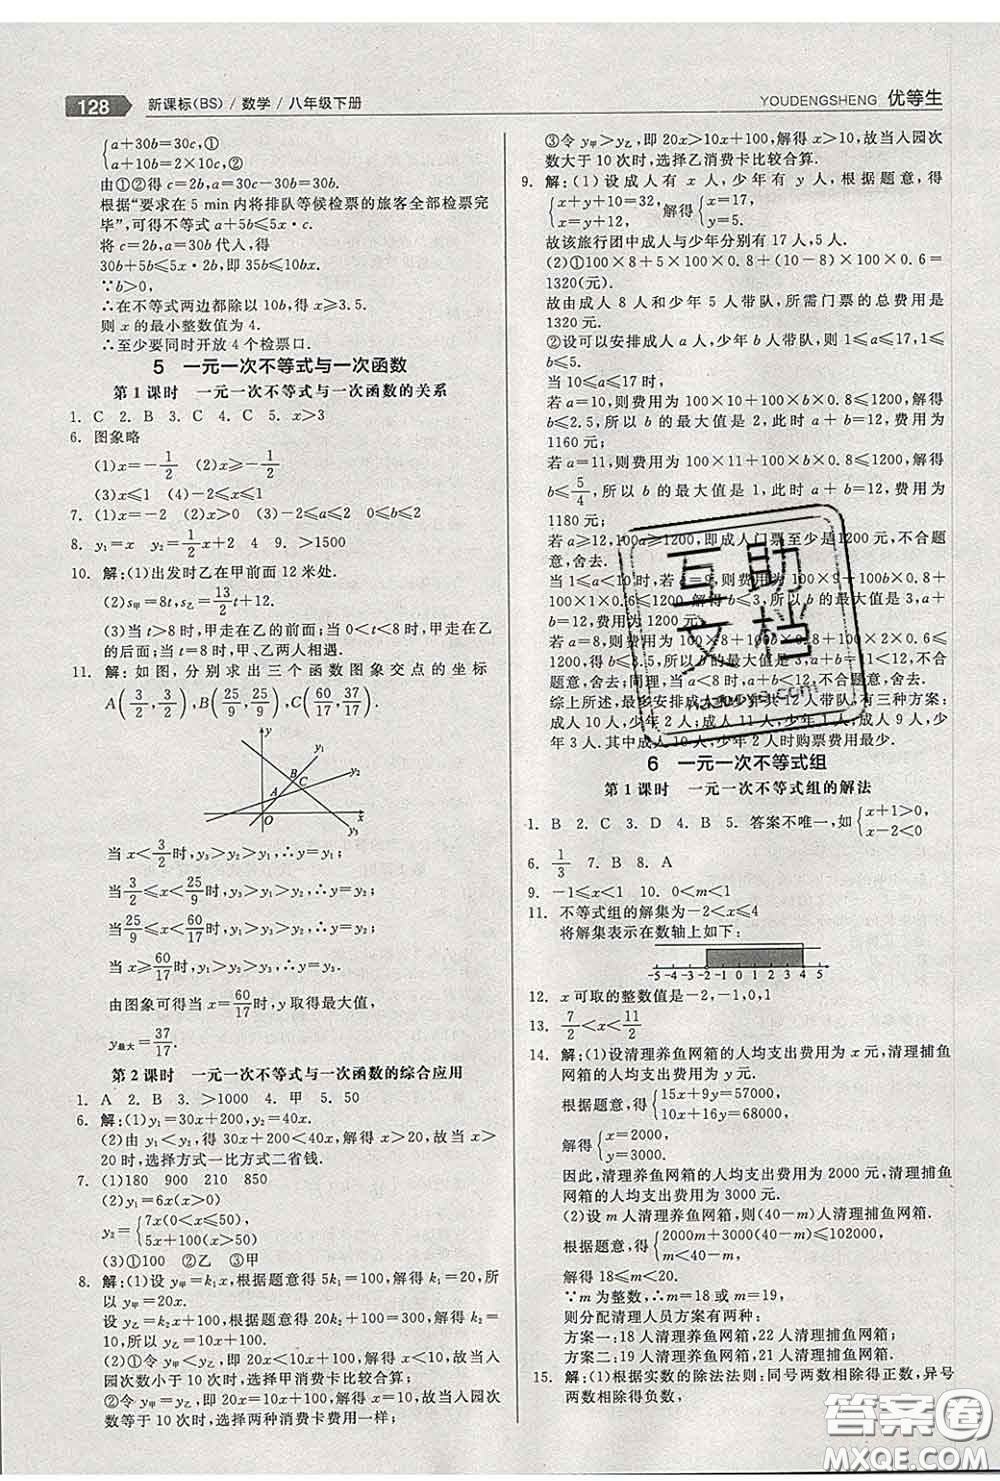 128 新课标(BS)/数学/八年级下册
YOUDENGSHENG 优等生
{a+30b=30c,①
a+10b=2×10c,②
由①②得 c=2b,a=30c-30b=30b.
根据“要求在 5 min 内将排队等候检票的旅客全部检票完
毕”,可得不等式 a+5b≤5x·c.
将 c=2b,a=30b 代人,得
30b+5b≤5x·2b,即 35b≤10bx.
∵b>0,
∴在不等式两边都除以 10b,得 x≥3.5.
则 x 的最小整数值为 4.
∴至少要同时开放 4 个检票口.
5 一元一次不等式与一次函数
第 1 课时 一元一次不等式与一次函数的关系
1. C 2. B 3. C 4. C 5. x>3
6. 图象略
(1)x=-1/2 (2)x≥-1/2
(3)x≤1 (4)-2≤x≤0
7. (1)x=-2 (2)-2≤x≤2 0≤x≤2
8. y₁=x y₂=1/2x+2 4 9. >1500
10. 解:(1)出发时乙在甲前面 12 米处.
(2)s甲=8t,s乙=13/2t+12.
(3)当 t>8 时,甲走在乙的前面;当 0<t<8 时,甲走在乙
的后面;当 t=8 时,甲、乙两人相遇.
11. 解:如图,分别求出三个函数图象交点的坐标
A(3/2,3/2),B(25/9,25/9),C(60/17,37/17)
y y₁ y₂ B C A O x y₃
当 x<3/2时,y₃>y₂>y₁,∴y=y₁;
当3/2≤x<25/9时,y₃>y₁>y₂,∴y=y₂;
当25/9≤x<60/17时,y₁>y₃>y₂,∴y=y₂;
当 x≥60/17时,y₁>y₂>y₃,∴y=y₃.
由图象可得当 x=60/17时,y 取得最大值,
y最大=37/17.
第 2 课时 一元一次不等式与一次函数的综合应用
1. A 2. B 3. >1000 4. 甲 5. 50
6. 解:(1)y₁=30x+200,y₂=40x.
(2)由 y₁<y₂,得 30x+200<40x,解得 x>20,故当 x>
20 时,选择方式一比方式二省钱.
7. (1)180 900 210 850
(2)y₁=6x(x>0)
y₂={7x(0<x≤50)
5x+100(x>50)
(3)①100 ②乙 ③甲
8. 解:(1)设 y甲=k₁x,根据题意得 5k₁=100,解得 k₁=20,
所以 y甲=20x.
设 y乙=k₂x+100,根据题意得 20k₂+100=300,解得 k₂=
10,所以 y乙=10x+100.
(2)①令 y甲<y乙,即 20x<10x+100,解得 x<10,故当入
园次数小于 10 次时,选择甲消费卡比较合算;
②令 y甲=y乙,即 20x=10x+100,解得 x=10,故当入园次
数等于 10 次时,选择两种消费卡费用一样;
③令 y甲>y乙,即 20x>10x+100,解得 x>10,故当入园次
数大于 10 次时,选择乙消费卡比较合算.
9. 解:(1)设成人有 x 人,少年有 y 人,根据题意,得
{x+y+10=32,
x=y+12, 解得{x=17,
y=5.
故该旅行团中成人与少年分别有 17 人,5 人.
(2)①100×8+5×100×0.8+(10-8)×100×0.6=
1320(元).
故由成人 8 人和少年 5 人带队,所需门票的总费用是
1320 元.
②设可以安排成人 a 人,少年 b 人带队,则 1≤a≤17,1≤
b≤5.
当 10≤a≤17 时,
若 a=10,则费用为 100×10+100×b×0.8≤1200,解得
b≤2.5,所以 b 的最大值是 2,此时 a+b=12,费用为
1160 元;
若 a=11,则费用为 100×11+100×b×0.8≤1200,解得
b≤5/4,所以 b 的最大值是 1,此时 a+b=12,费用为
1180 元;
若 a≥12,100a≥1200,即成人门票至少是 1200 元,不合题
意,舍去.
当 1≤a<10 时,若 a=9,则费用为 100×9+100×b×0.8
+100×1×0.6≤1200,解得 b≤3,所以 b 的最大值是 3,
a+b=12,费用为 1200 元;
若 a=8,则费用为 100×8+100×b×0.8+100×2×0.6≤
1200,解得 b≤3.5,所以 b 的最大值是 3,a+b=11<12,不合
题意,舍去;同理,当 a<8 时,a+b<12,不合题意,舍去.
综上所述,最多安排成人和少年共 12 人带队,有三种方案:
成人 10 人,少年 2 人;成人 11 人,少年 1 人;成人 9 人,少
年 3 人.其中成人 10 人,少年 2 人时购票费用最少.
6 一元一次不等式组
第 1 课时 一元一次不等式组的解法
1. B 2. C 3. D 4. B 5. 答案不唯一,如{x+1>0,
x-2<0
6. 1/3 7. B 8. A
9. -1≤x<1 10. 0<m<1
11. 不等式组的解集为-2<x≤4
将解集表示在数轴上如下:
-5 -4 -3 -2 -1 0 1 2 3 4 5
12. x 可取的整数值是-2,-1,0,1
13. 7/2<x<11/2
14. 解:(1)设清理养鱼网箱的人均支出费用为 x 元,清理捕鱼
网箱的人均支出费用为 y 元.
根据题意,得{15x+9y=57000,
10x+16y=68000,
解得{x=2000,
y=3000.
因此,清理养鱼网箱的人均支出费用为 2000 元,清理捕鱼
网箱的人均支出费用为 3000 元.
(2)设 m 人清理养鱼网箱,则(40-m)人清理捕鱼网箱.
根据题意,得{2000m+3000(40-m)≤102000,
m<40-m,
解得 18≤m<20.
∵m 为整数,∴m=18 或 m=19,
则分配清理人员方案有两种:
方案一:18 人清理养鱼网箱,22 人清理捕鱼网箱;
方案二:19 人清理养鱼网箱,21 人清理捕鱼网箱.
15. 解:(1)根据实数的除法法则:同号两数相除得正数,异号
两数相除得负数,
互助文档
答案圈
MXQE.COM